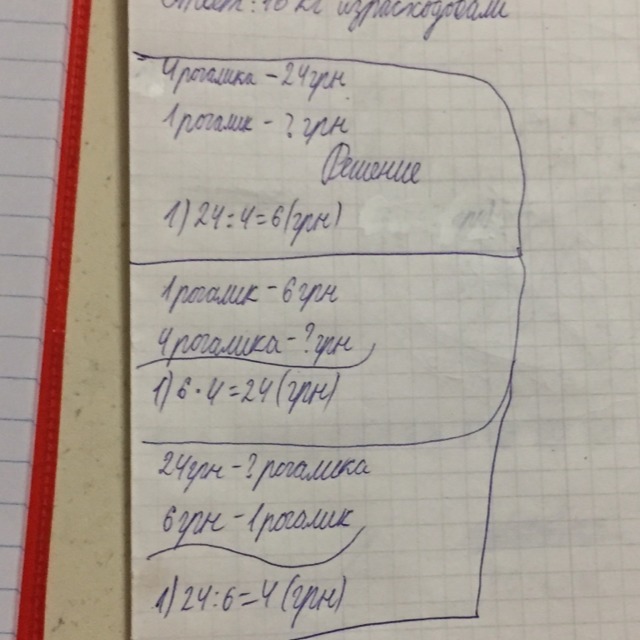 Ответ: 16 кг израсходовали
4 рогалика - 24 грн
1 рогалик - ? грн
Решение
1) 24:4=6(грн)
1 рогалик - 6 грн
4 рогалика - ? грн
1) 6·4=24(грн)
24 грн - ? рогалика
6 грн - 1 рогалик
1) 24:6=4(грн)